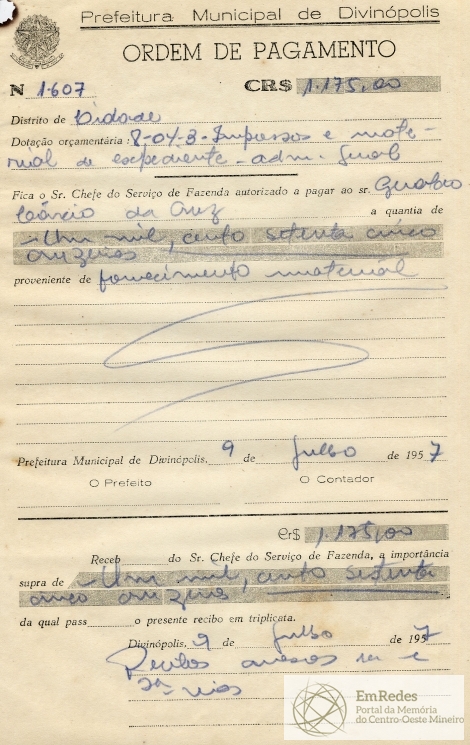 Prefeitura Municipal de Divinópolis
ORDEM DE PAGAMENTO
N 1.607 CR$ 1.175,00
Distrito de Cidade
Dotação orçamentária : 8-04-3-Impressos e mate-
rial de expediente - adm. Geral
Fica o Sr. Chefe do Serviço de Fazenda autorizado a pagar ao sr.
da Cruz a quantia de
Um mil, cento setenta cinco
cruzeiros
proveniente de fornecimento material
Prefeitura Municipal de Divinópolis, 9 de julho de 1957
O Prefeito O Contador
Cr$ 1.175,00
Receb do Sr. Chefe do Serviço de Fazenda, a importância
supra de Um mil, cento setenta
cinco cruzeiros
da qual pass o presente recibo em triplicata.
Divinópolis, 9 de julho de 1957
Recibos anexos
vias
EmRedes
Portal da Memória
do Centro-Oeste Mineiro